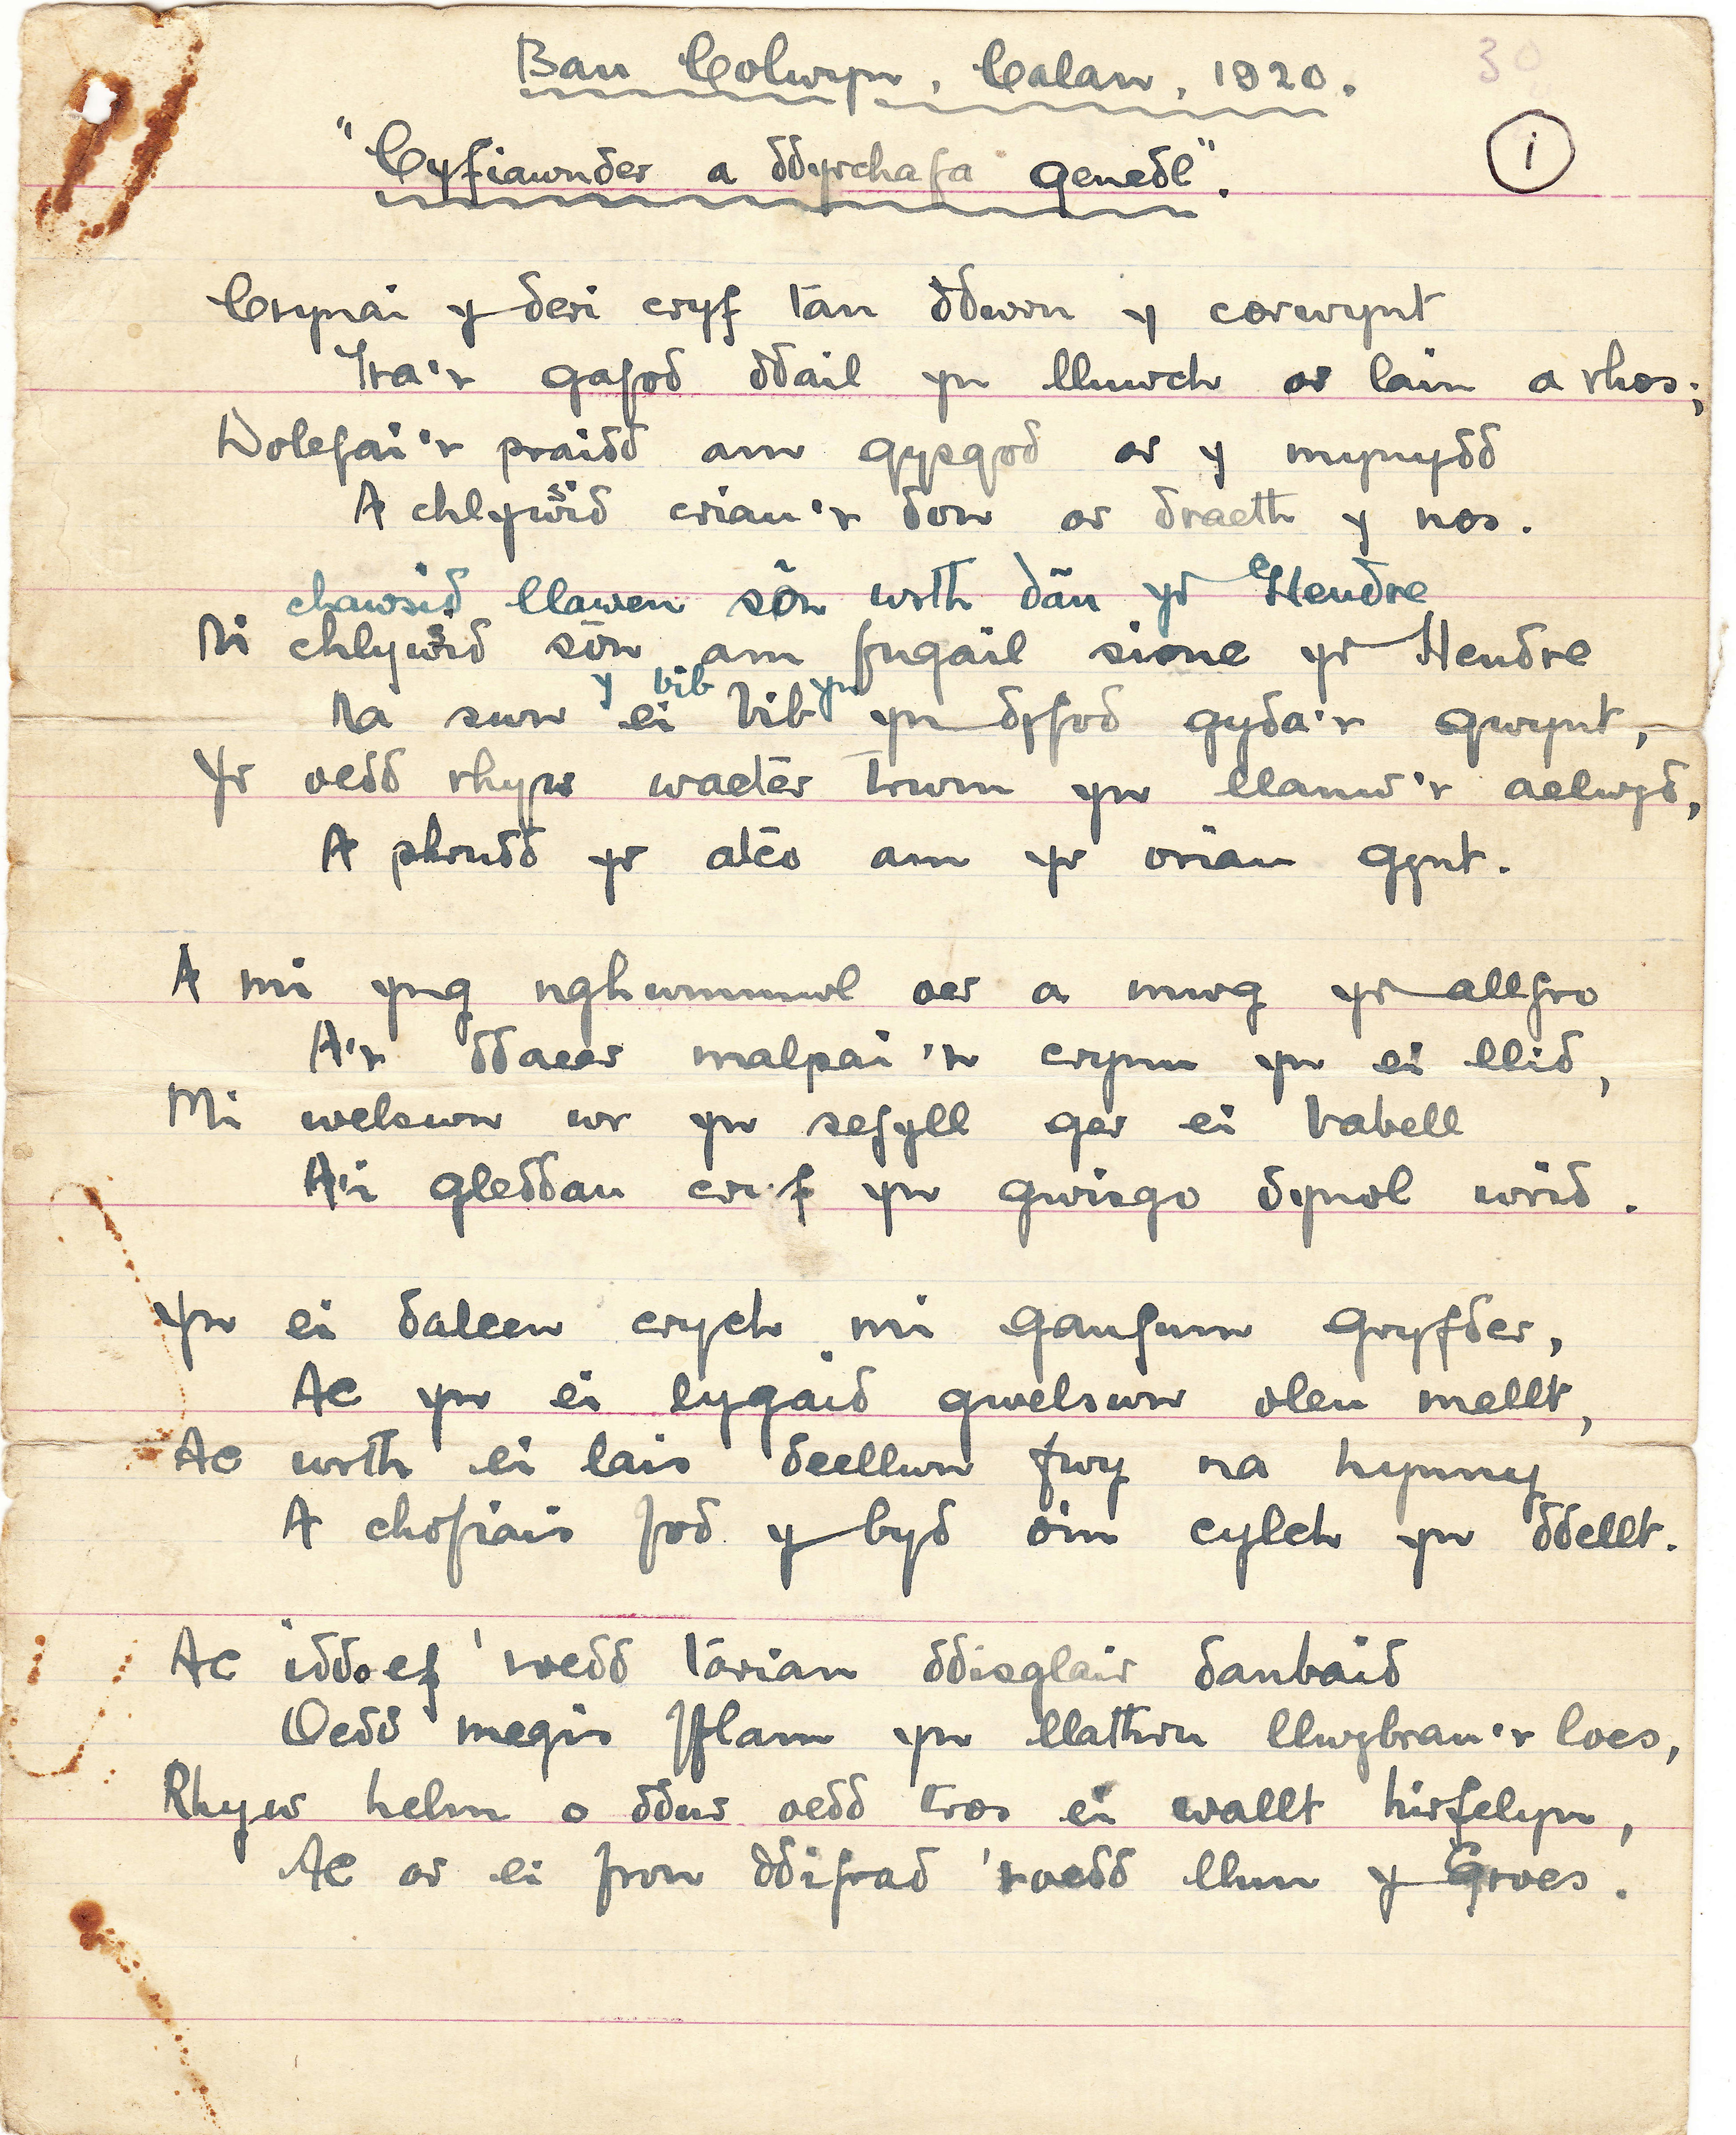 Bau Colwyn, Calan, 1920.
30
"Cyfiawnder a ddyrchafa genedl".
i
Crynai y deri cryf tan ddwrn y corwynt
Tra'r gafod ddail yn lluwch ar lain a rhos;
Dolefai'r praidd am gysgod ar y mynydd
A chlywsid crian'r don ar draeth y nos.
chawsid llawen sôn wrth dân yr Hendre
Ni chlywsid sôn am fugail sionc yr Hendre
y bib yn
Na swn ei bib yn dyfod gyda'r gwynt,
Yr oedd rhyw wacter trwm yn llanw'r aelwyd,
A phrudd yr atco am yr oriau gynt.
A mi yng nghwmmwl oer a mwg yr allfro
A'r ddaear malpai'n crynu yn ei llid,
Mi welswn wr yn sefyll ger ei babell
A'i gleddau cryf yn gwisgo dynol wrid.
Yn ei dalcen crych mi ganfum gryfder,
Ac yn ei lygaid gwelswn oleu mellt,
Ac wrth ei lais deellwn fwy na hynny
A chofiais fod y byd o'm cylch yn ddellt.
Ac iddo ef 'roedd tarian ddisglair danbaid
Oedd megis fflam yn llathru llwybrau'r loes,
Rhyw helm o ddur oedd tros ei wallt hirfelyn,
Ac ar ei fron ddifrad 'roedd llun y Groes.